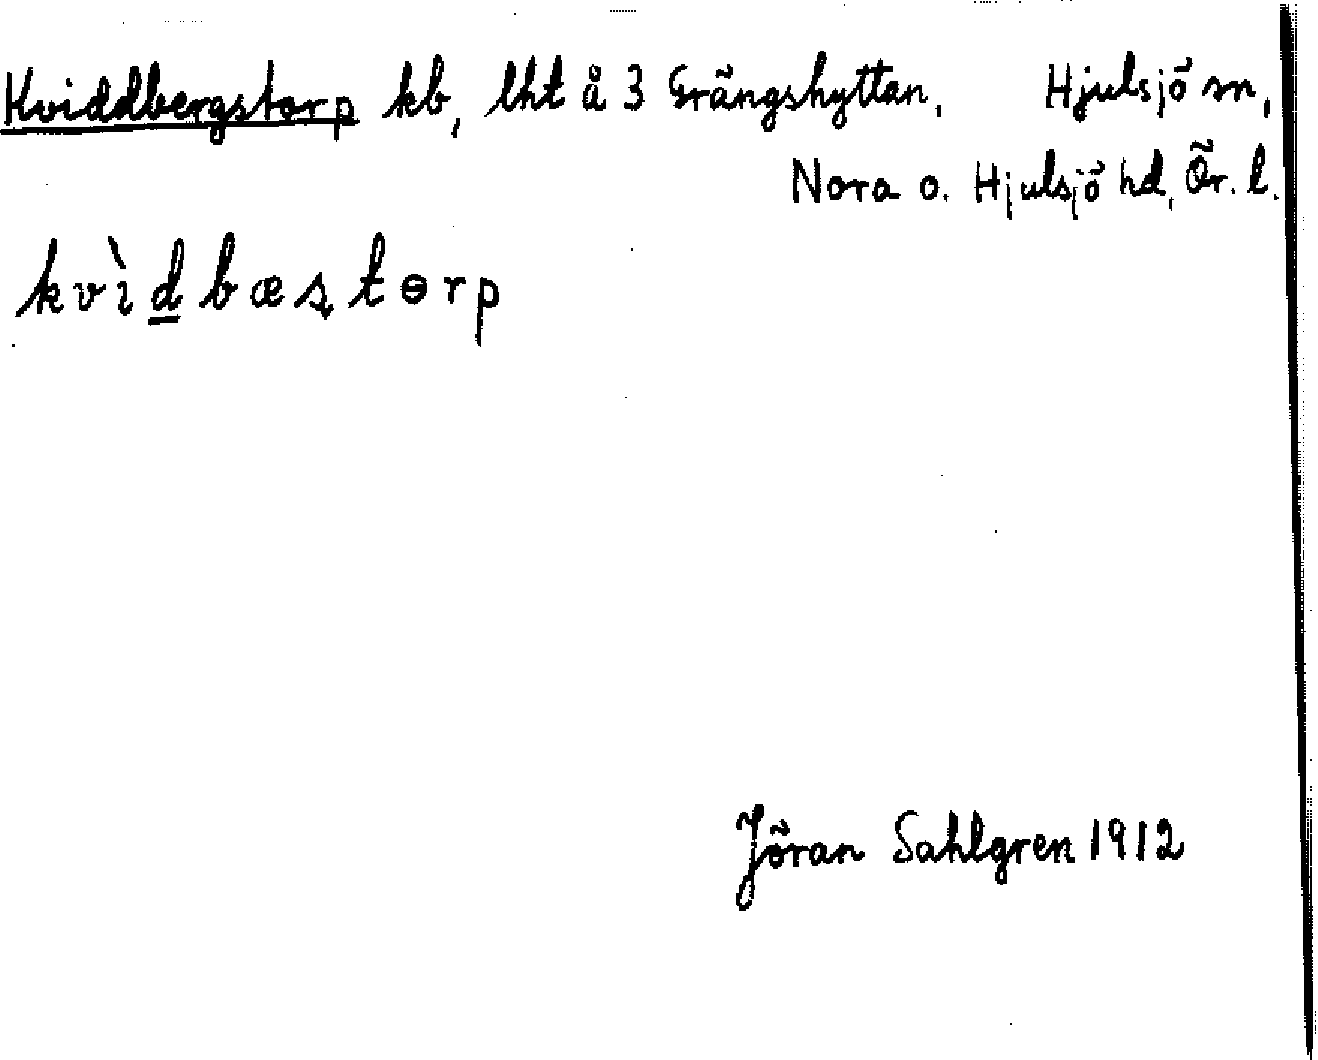 Kviddbergstorp kb, lht å 3 Grängshyttan, Hjulsjö sn,
Nora o. Hjulsjö hd, Ör. l.
kvìd̲bæstɵrp
Jöran Sahlgren 1912